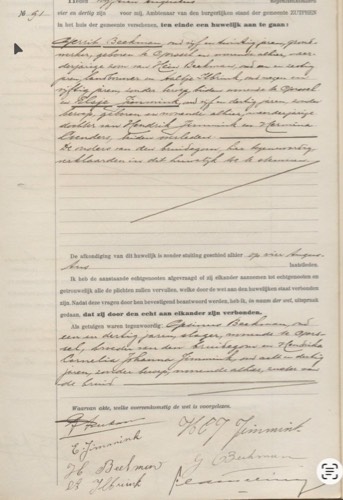 No 91
vier en dertig zijn voor mij, Ambtenaar van den burgerlijken stand der gemeente ZUTPHEN
in het huis der gemeente verschenen, ten einde een huwelijk aan te gaan:
Gerrit Beekman, oud vijf en twintig jaren, grond-
werker, geboren te Gorssel en wonende alhier, meer-
derjarige zoon van Beekman, oud en zestig
jaren, landbouwer en Aaltje Ilbrink, oud negen en
vijftig jaren, zonder beroep, beiden wonende te Gorssel
en Jimmink, oud vijf en dertig jaren, zonder
beroep, geboren en wonende alhier, meerderjarige
dochter van Hendrik Jimmink en Hermina
beiden overleden.
De ouders van den bruidegom, hier tegenwoordig
verklaarden in dit huwelijk toe te stemmen
De afkondiging van dit huwelijk is zonder stuiting geschied alhier op vier Augus-
tus laatstleden.
Ik heb de aanstaande echtgenooten afgevraagd of zij elkander aannemen tot echtgenooten en
getrouwelijk alle de plichten zullen vervullen, welke door de wet aan den huwelijken staat verbonden
zijn. Nadat deze vragen door hen bevestigend beantwoord werden, heb ik, in naam der wet, uitspraak
gedaan, dat zij door den echt aan elkander zijn verbonden.
Als getuigen waren tegenwoordig: Beekman, oud
een en dertig jaren, slager, wonende te Gors-
sel, broeder van den bruidegom en Hendrika
Cornelia Johanna Jimmink, oud acht en dertig
jaren, zonder beroep, wonende alhier, zuster van
de bruid.
Waarvan akte, welke overeenkomstig de wet is voorgelezen.
E. Jimmink
H C J Jimmink
H Beekman
G Beekman
A Ilbrink